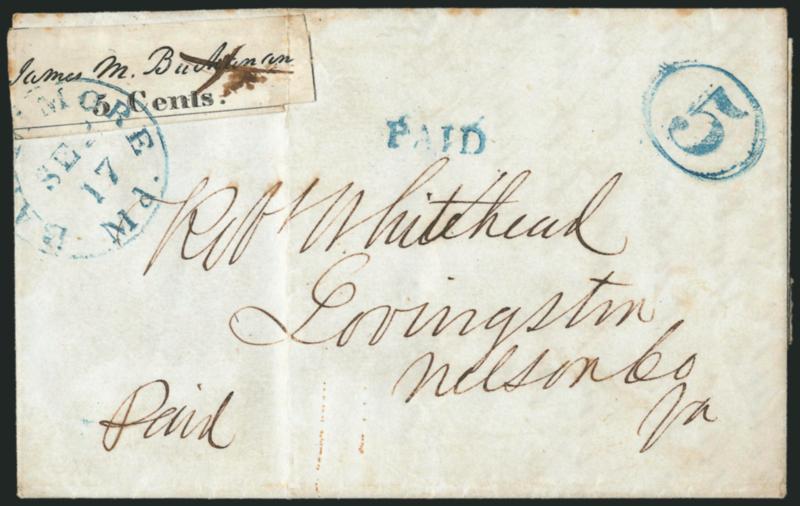 James M. Buchanan
5 Cents.
BALTIMORE. Md.
SEP
17
PAID
5
Robt Whitehead
Lovingston
Nelson Co
Va
Paid